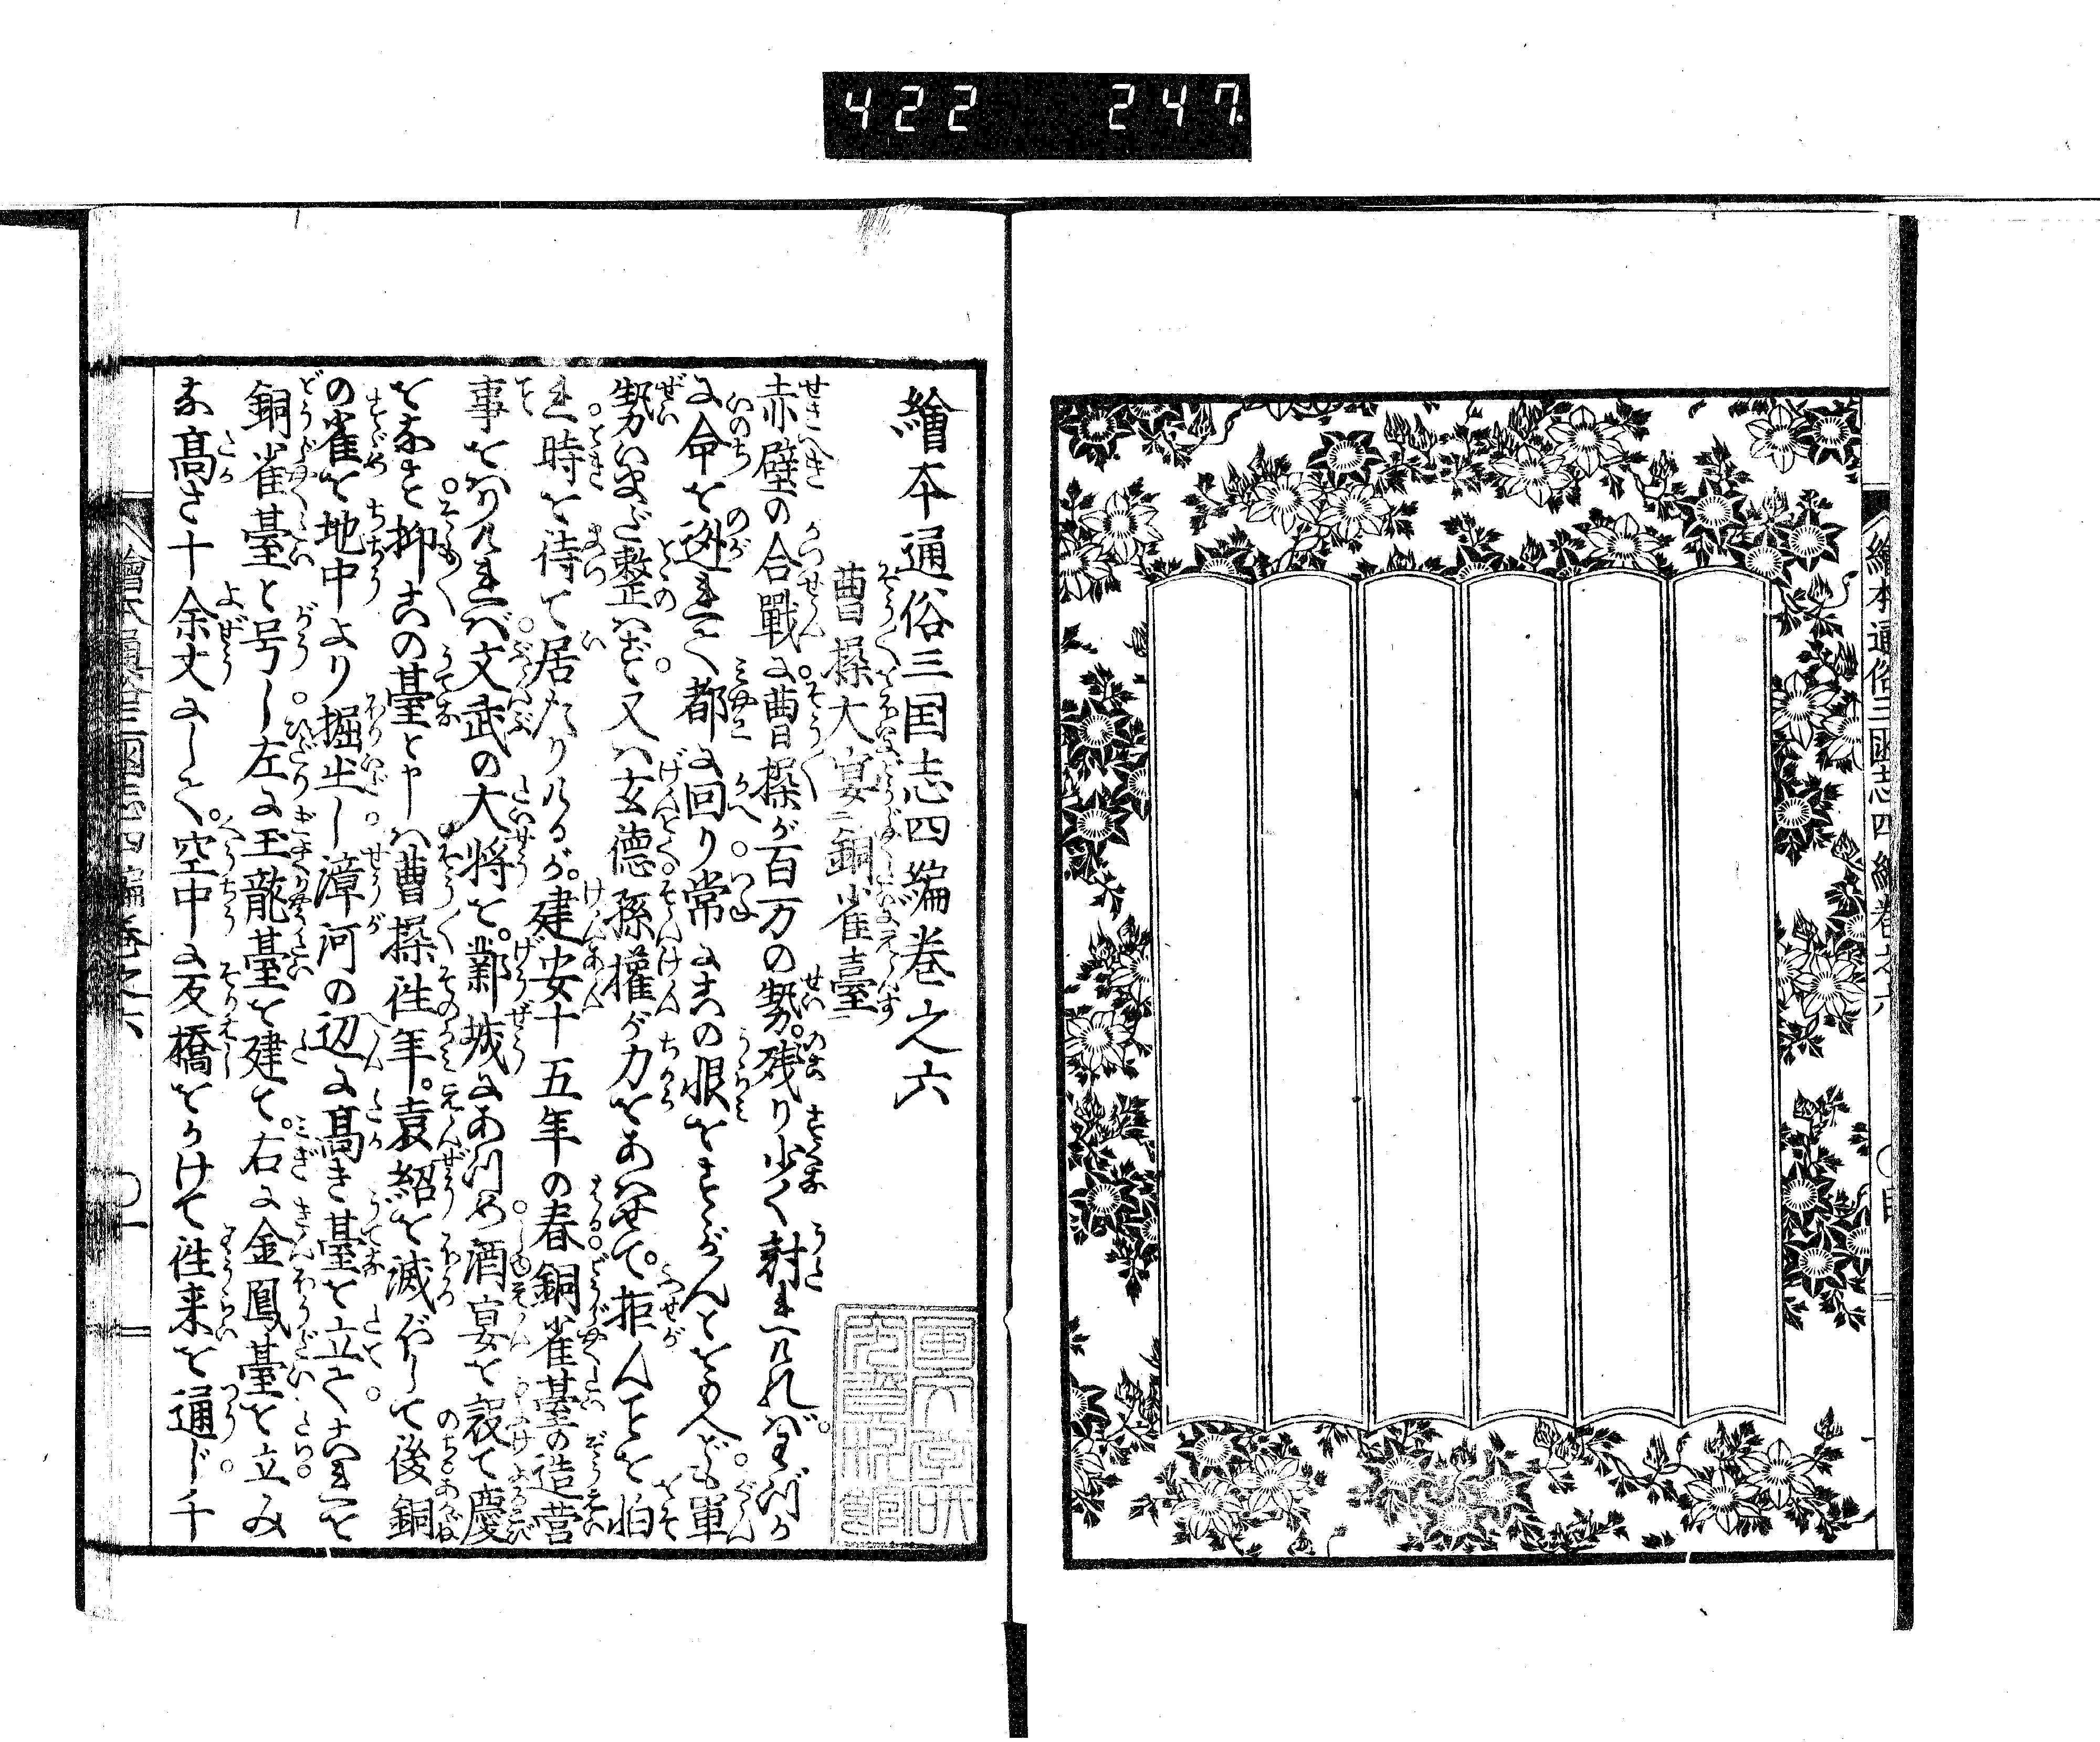 422 247
繪本通俗三國志四編卷之六
繪本通俗三国志四編巻之六
曹操大宴二銅雀臺一
赤壁の合戰に曹操が百万の勢。残り少く討れければ。わづか
に命を逃れて都に回り常に此の恨をすゝがんとをもへども。軍
勢いまだ整はず。又は玄德孫權が力をあはせて。拒んことを怕
れ。時を待て居たりけるが。建安十五年の春。銅雀臺の造営
事をはりければ。文武の大将を。鄴城にあつめ。酒宴を設て慶
をなす。抑此の臺と申は。曹操往年。袁紹を滅ぼして後銅
の雀を地中より掘出し。漳河の辺に高き臺を立て。これを
銅雀臺と号し。左に玉龍臺を建て。右に金鳳臺を立。み
な高さ十余丈にして。空中に反橋をかけて往来を通じ。千
繪本通俗三國志四編卷之六 一